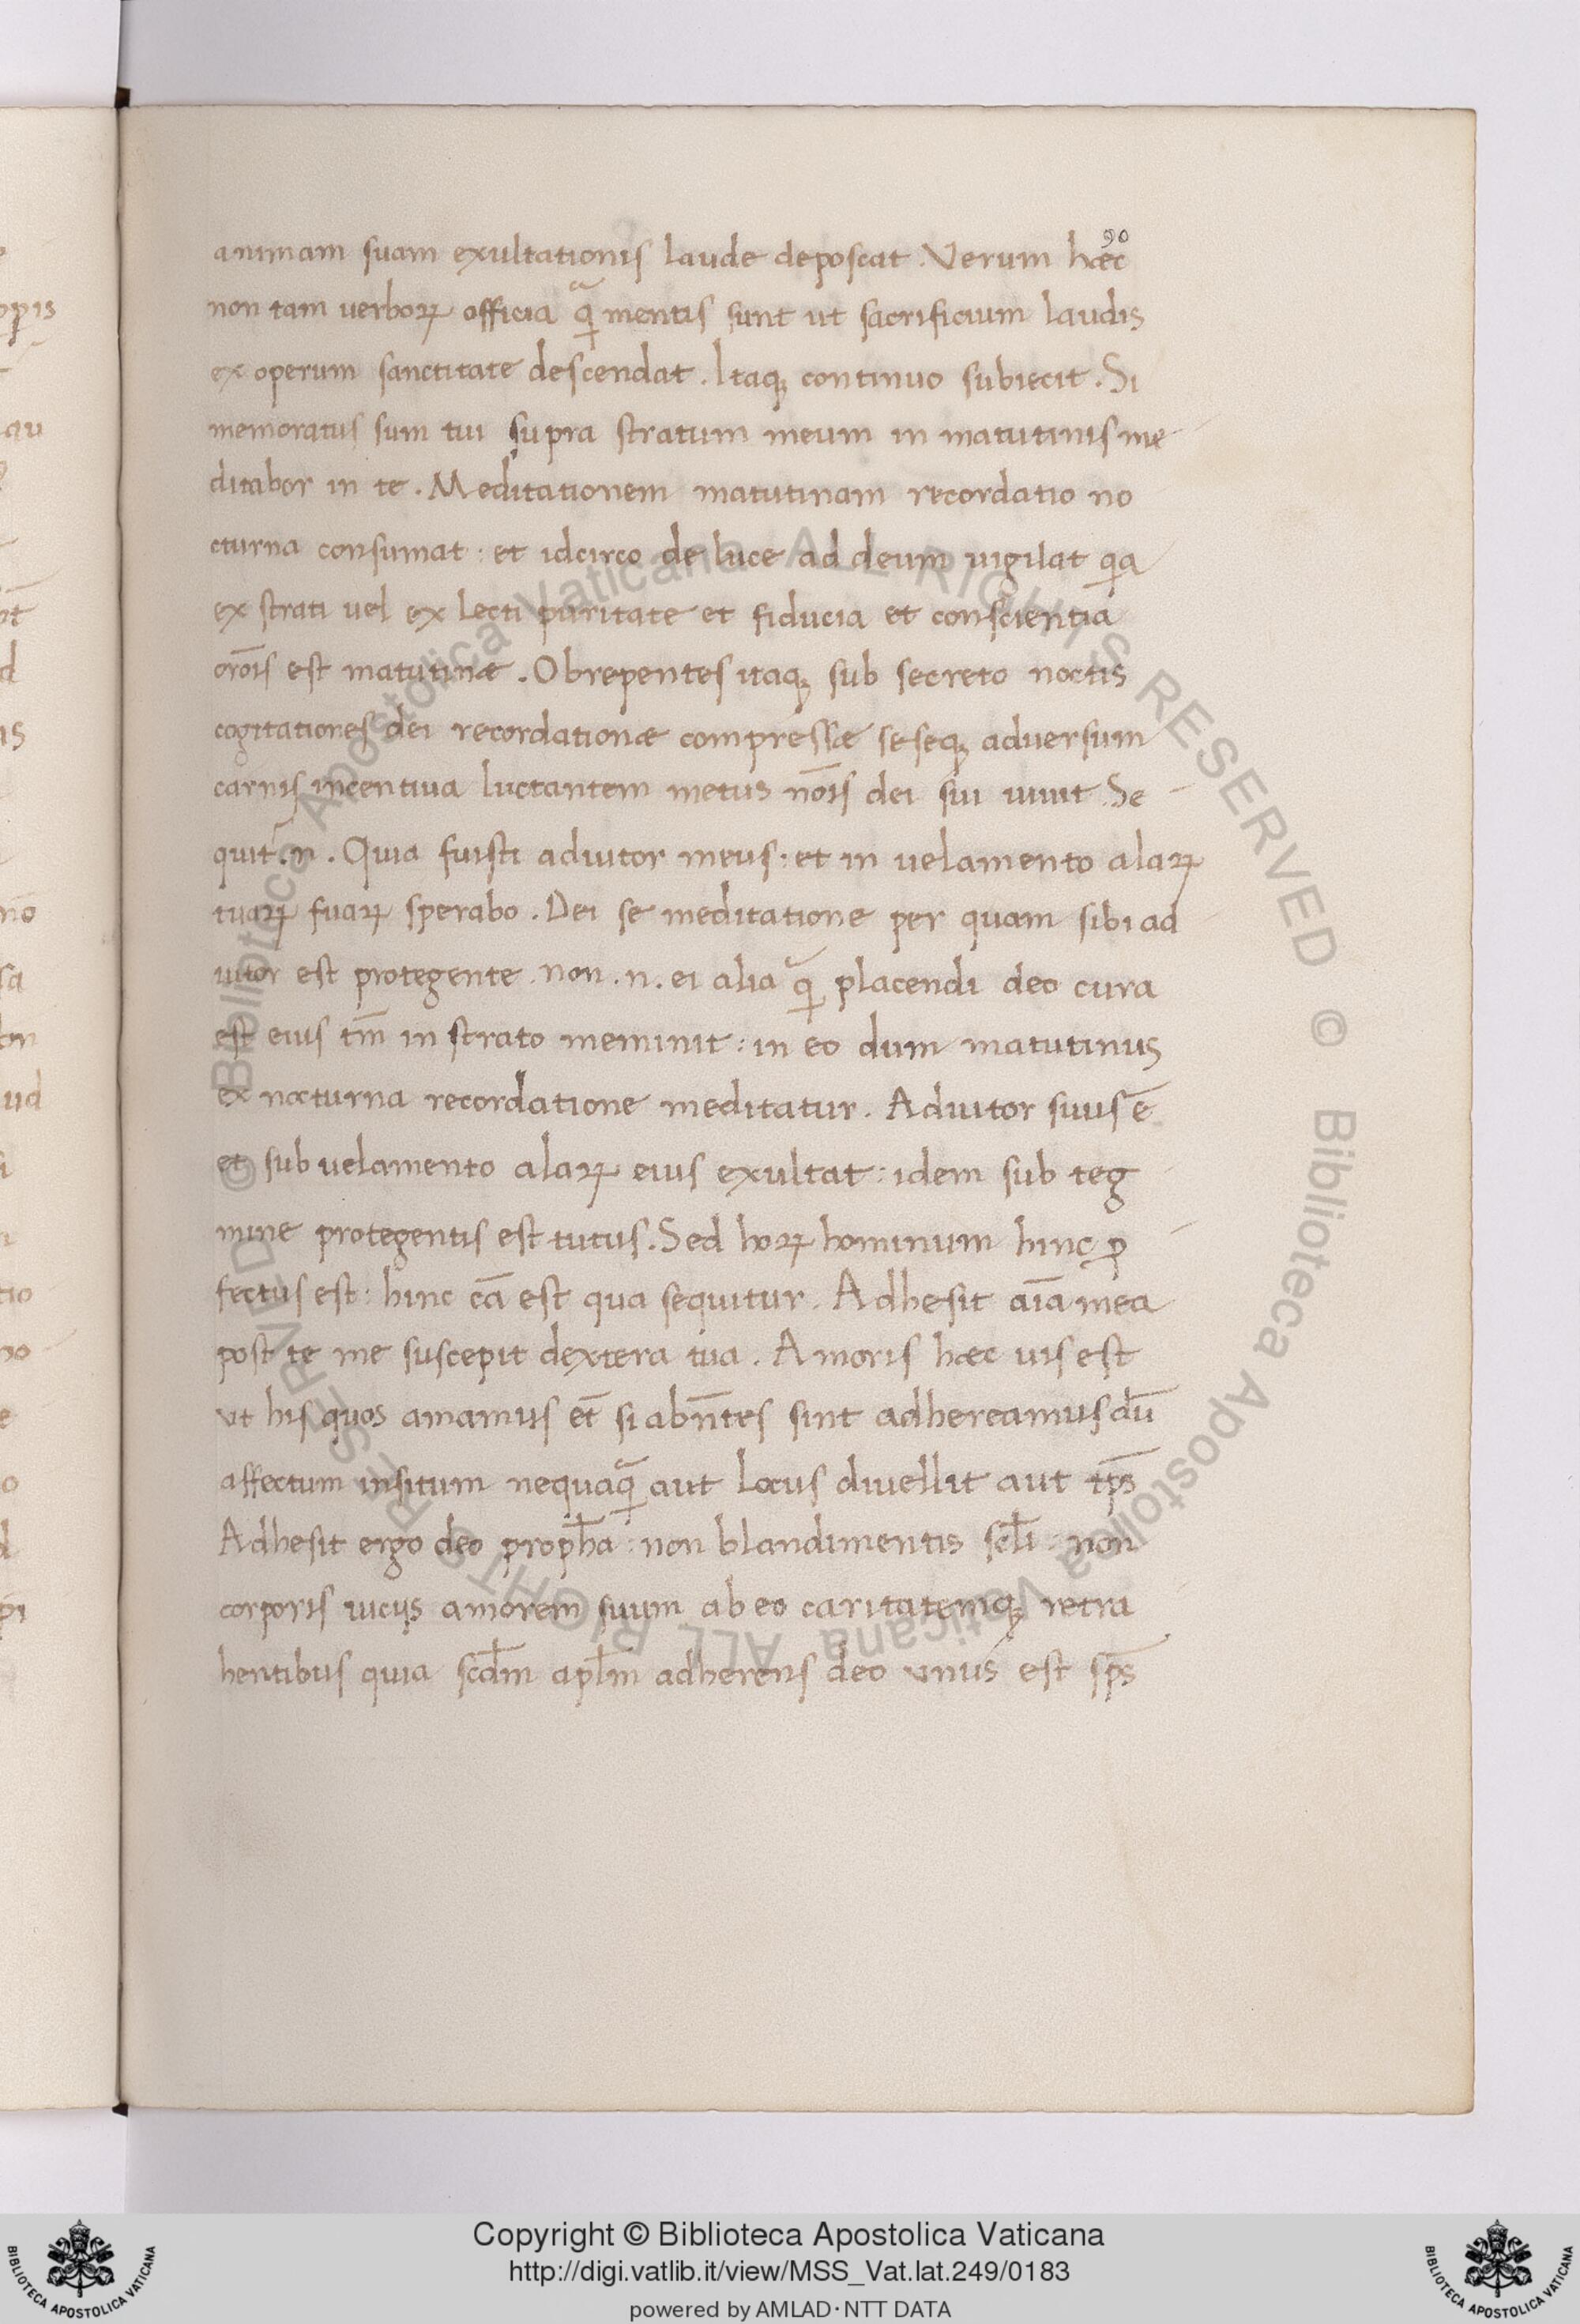 90
animam suam exultationis laude deposcat. Verum hæc
non tam uerboꝝ officia qͣ̃ mentis sunt ut sacrificium laudis
ex operum sanctitate descendat. Itaqꝫ continuo subiecit. Si
memoratus sum tui supra stratum meum in matutinis me
ditabor in te. Meditationem matutinam recordatio no
cturna consumat: et idcirco de luce ad deum uigilat qia
ex strati uel ex lecti puritate et fiducia et conscientia
orōis est matutinæ. Obrepentes itaqꝫ sub secreto noctis
cogitationes dei recordationæ compressæ seseqꝫ aduersum
carnis incentiua luctantem metus nōis dei sui uiuit. Se
quit̃.n. Quia fuisti adiutor meus: et in uelamento alaꝝ
tuaꝝ fuaꝝ sperabo. Dei se meditatione per quam sibi ad
iutor est protegente. non.n. ei alia qͣ̃ placendi deo cura
est eius tm̄ in strato meminit: in eo dum matutinus
ex nocturna recordatione meditatur. Adiutor suus ē
et sub uelamento alaꝝ eius exultat: idem sub teg
mine protegentis est tutus. Sed hoꝝ hominum hinc ꝓ
fectus est: hinc cā est qua sequitur. Adhesit aīa mea
post te me suscepit dextera tua. Amoris hæc uis est
ut his quos amamus et̄ si abn̄tes sint adhereamus dū
affectum insitum nequaqͣ̃ aut locus diuellit aut tp̄s
Adhesit ergo deo prophā: non blandimentis scl̄i: non
corporis uicijs amorem suum ab eo caritatemqꝫ retra
hentibus quia scd̄m apl̄m adherens deo unus est sp̄s
Copyright © Biblioteca Apostolica Vaticana
http://digi.vatlib.it/view/MSS_Vat.lat.249/0183
powered by AMLAD·NTT DATA